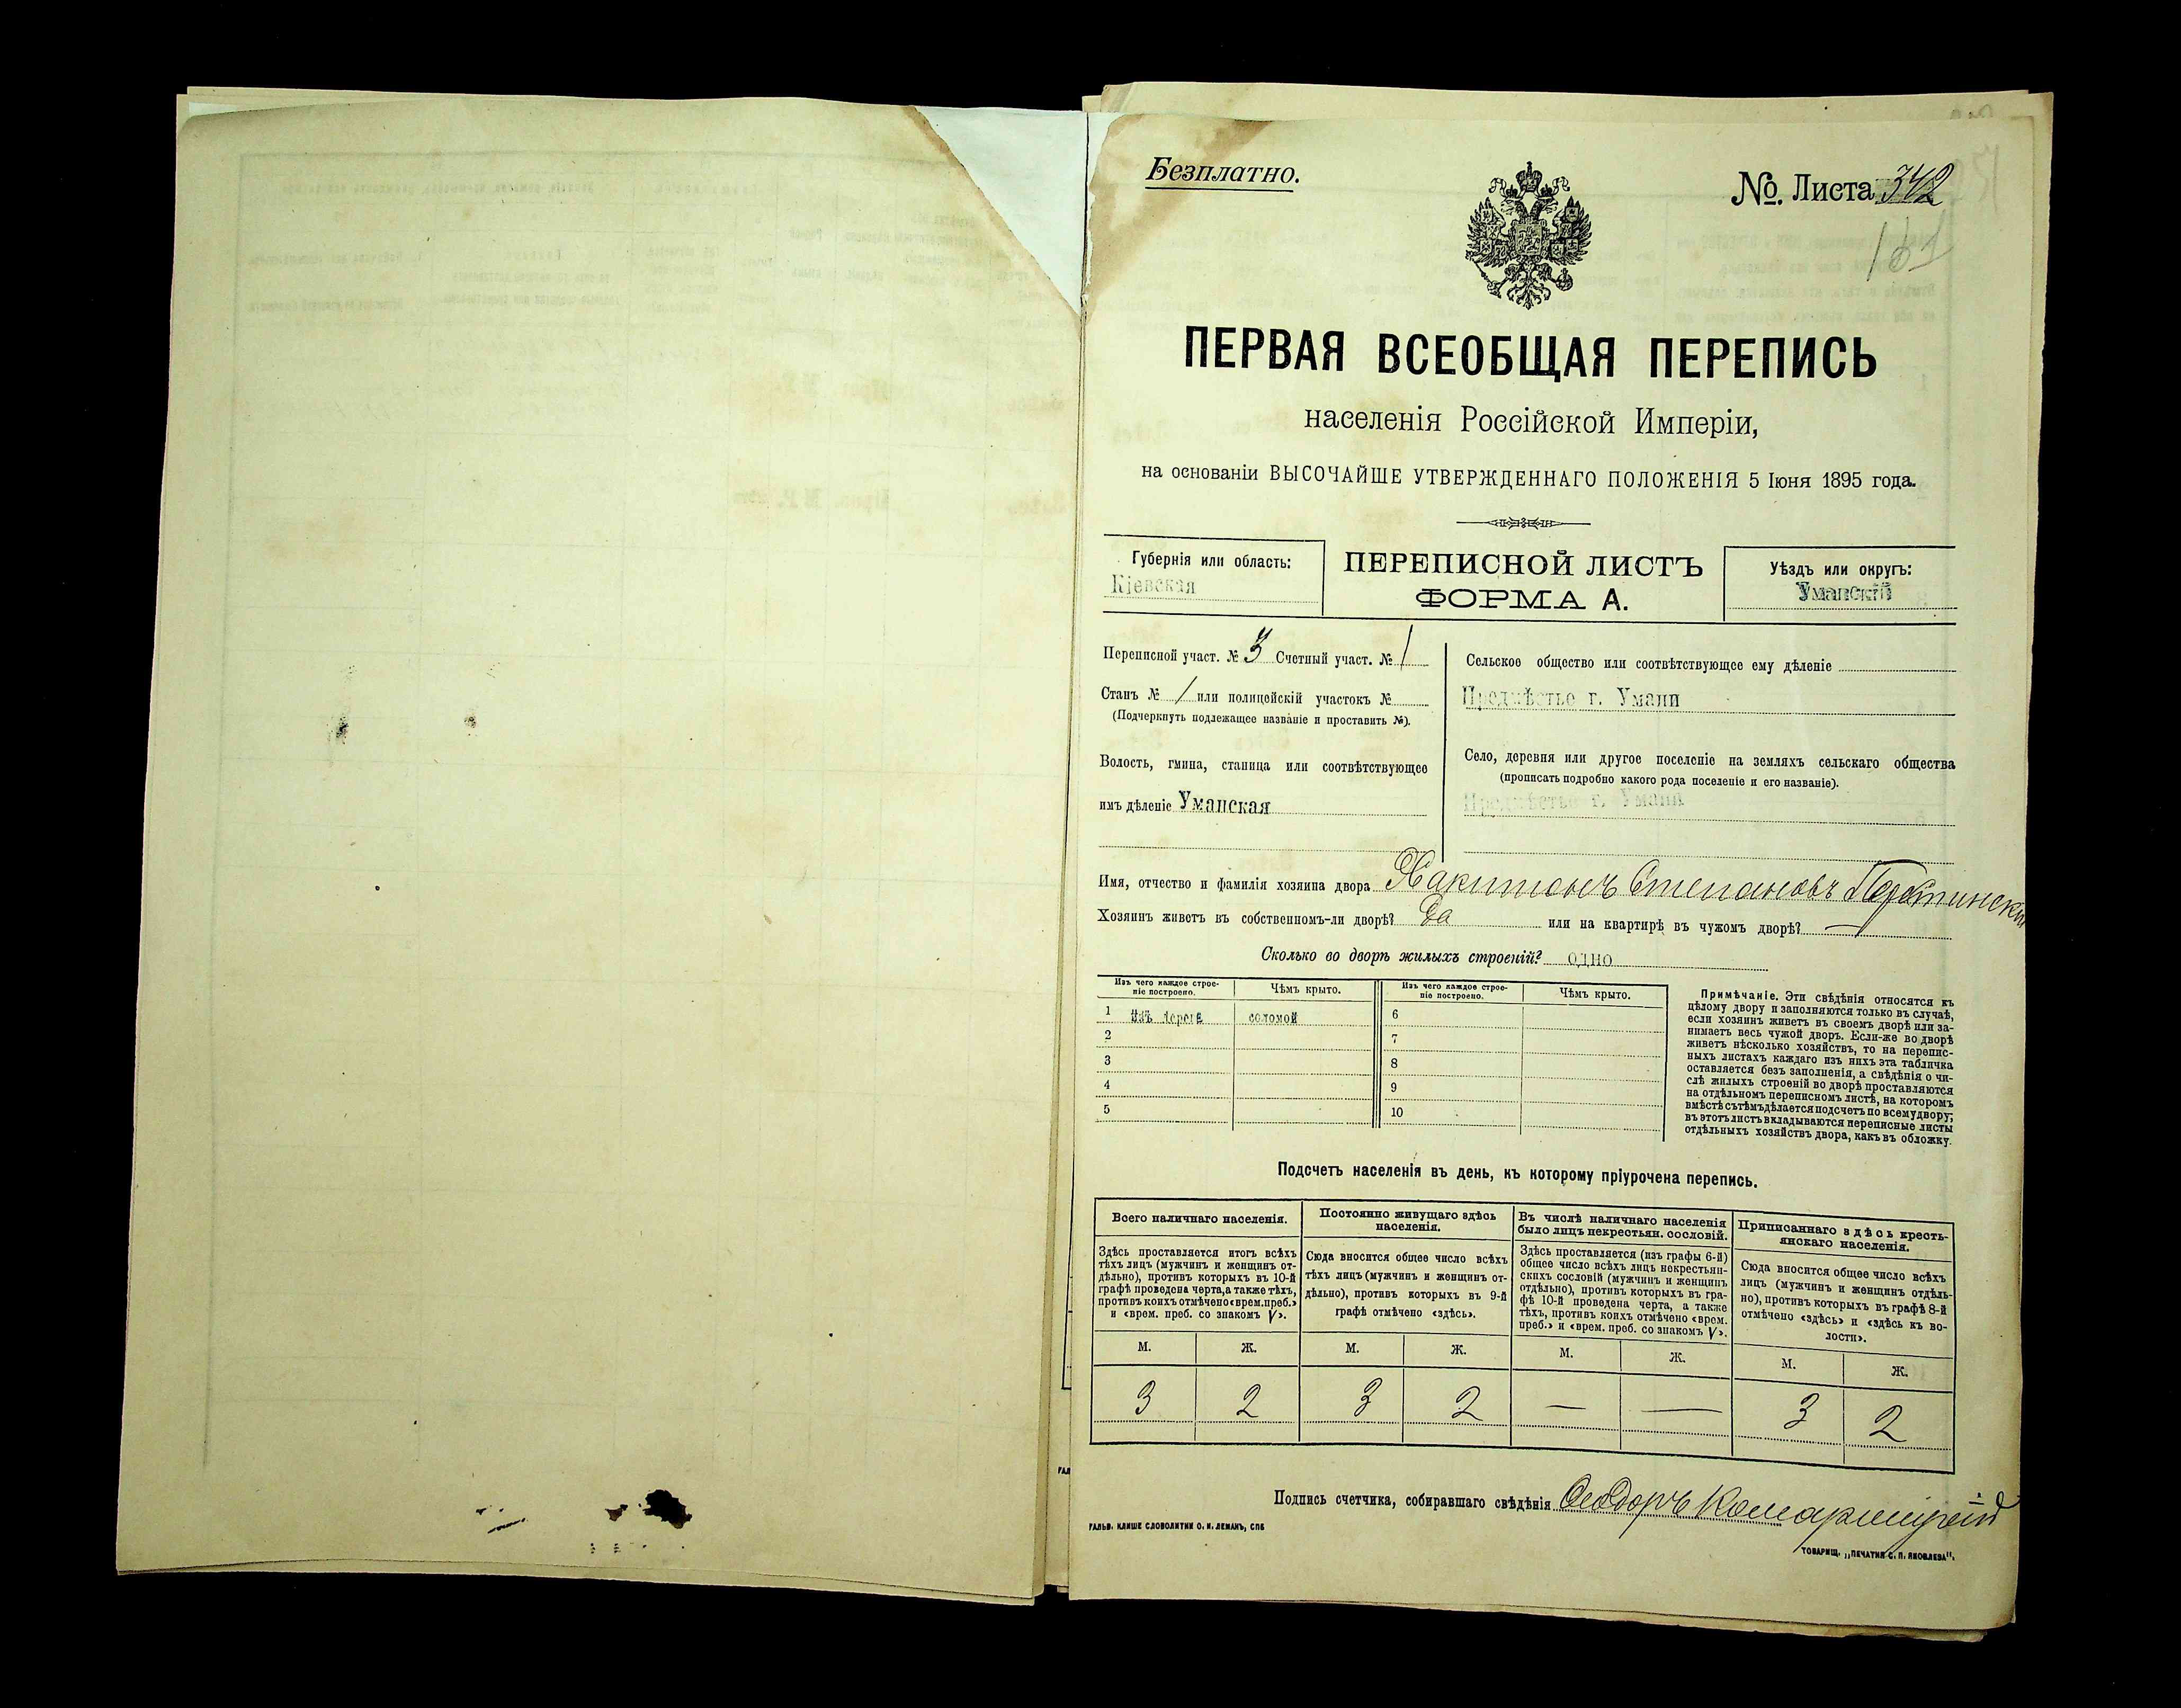 Безплатно.
№. Листа 342
ПЕРВАЯ ВСЕОБЩАЯ ПЕРЕПИСЬ
населенія Россійской Имперіи,
на основаніи ВЫСОЧАЙШЕ УТВЕРЖДЕННАГО ПОЛОЖЕНІЯ 5 Іюня 1895 года.
Губернія или область:
Кіевская
ПЕРЕПИСНОЙ ЛИСТЪ
ФОРМА А.
Уѣздъ или округъ:
Уманскій
Переписной участ. № 3 Счетный участ. № 1
Станъ № 1 или полицейскій участокъ №
(Подчеркнуть подлежащее названіе и проставить №).
Волость, гмина, станица или соотвѣтствующее
имъ дѣленіе Уманская
Сельское общество или соотвѣтствующее ему дѣленіе
Предмѣстье г. Умани
Село, деревня или другое поселеніе на земляхъ сельскаго общества
(прописать подробно какого рода поселеніе и его названіе).
Предмѣстье г. Умани
Имя, отчество и фамилія хозяина двора Степановъ
Хозяинъ живетъ въ собственномъ-ли дворѣ? Да или на квартирѣ въ чужомъ дворѣ? —
Сколько во дворѣ жилыхъ строеній? одно
Изъ чего каждое строе-
ніе построено.
Чѣмъ крыто.
Изъ чего каждое строе-
ніе построено.
Чѣмъ крыто.
1 Изъ дерева соломой 6
2 7
3 8
4 9
5 10
Примѣчаніе. Эти свѣдѣнія относятся къ
цѣлому двору и заполняются только въ случаѣ,
если хозяинъ живетъ въ своемъ дворѣ или за-
нимаетъ весь чужой дворъ. Если-же во дворѣ
живетъ нѣсколько хозяйствъ, то на перепис-
ныхъ листахъ каждаго изъ нихъ эта табличка
оставляется безъ заполненія, а свѣдѣнія о чи-
слѣ жилыхъ строеній во дворѣ проставляются
на отдѣльномъ переписномъ листѣ, на которомъ
вмѣстѣ съ тѣмъ дѣлается подсчетъ по всему двору;
въ этотъ листъ вкладываются переписные листы
отдѣльныхъ хозяйствъ двора, какъ въ обложку.
Подсчетъ населенія въ день, къ которому пріурочена перепись.
Всего наличнаго населенія.
Здѣсь проставляется итогъ всѣхъ
тѣхъ лицъ (мужчинъ и женщинъ от-
дѣльно), противъ которыхъ въ 10-й
графѣ проведена черта, а также тѣхъ,
противъ коихъ отмѣчено «врем. преб.»
и «врем. преб. со знакомъ V».
Постоянно живущаго здѣсь
населенія.
Сюда вносится общее число всѣхъ
тѣхъ лицъ (мужчинъ и женщинъ от-
дѣльно), противъ которыхъ въ 9-й
графѣ отмѣчено «здѣсь».
Въ числѣ наличнаго населенія
было лицъ некрестьян. сословій.
Здѣсь проставляется (изъ графы 6-й)
общее число всѣхъ лицъ некрестьян-
скихъ сословій (мужчинъ и женщинъ
отдѣльно), противъ которыхъ въ гра-
фѣ 10-й проведена черта, а также
тѣхъ, противъ коихъ отмѣчено «врем.
преб.» и «врем. преб. со знакомъ V».
Приписаннаго здѣсь кресть-
янскаго населенія.
Сюда вносится общее число всѣхъ
лицъ (мужчинъ и женщинъ отдѣль-
но), противъ которыхъ въ графѣ 8-й
отмѣчено «здѣсь» и «здѣсь въ во-
лости».
М. Ж. М. Ж. М. Ж. М. Ж.
3 2 3 2 — — 3 2
Подпись счетчика, собиравшаго свѣдѣнія Ѳеодоръ
ГАЛЬВ. КЛИШЕ СЛОВОЛИТНИ О. И. ЛЕМАНЪ, СПБ
ТОВАРИЩ. „ПЕЧАТНЯ С. П. ЯКОВЛЕВА".